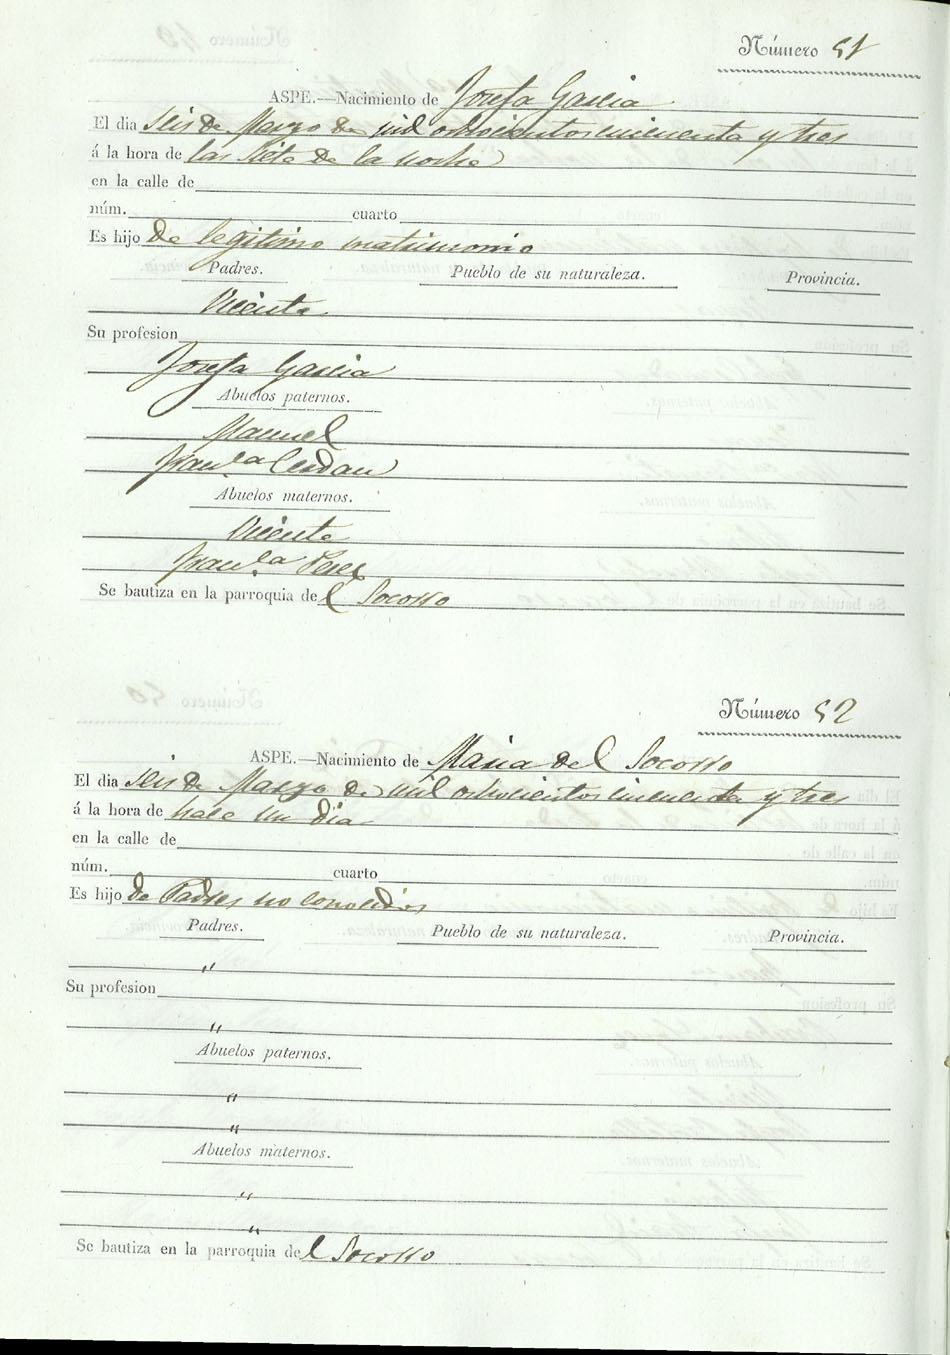 Número 51
ASPE.—Nacimiento de Josefa Garcia
El dia seis de Marzo de mil ochocientos cincuenta y tres
á la hora de las siete de la noche
en la calle de
núm. cuarto
Es hijo de legitimo matrimonio
Padres. Pueblo de su naturaleza. Provincia.
Vicente
Su profesion
Josefa Garcia
Abuelos paternos.
Manuel
Fran.ca Cerdan
Abuelos maternos.
Vicente
Fran.ca Perez
Se bautiza en la parroquia del Socorro
Número 52
ASPE.—Nacimiento de Maria del Socorro
El dia seis de Marzo de mil ochocientos cincuenta y tres
á la hora de hace un dia
en la calle de
núm. cuarto
Es hijo de Padres no conocidos
Padres. Pueblo de su naturaleza. Provincia.
"
Su profesion
"
Abuelos paternos.
"
"
Abuelos maternos.
"
"
Se bautiza en la parroquia del Socorro